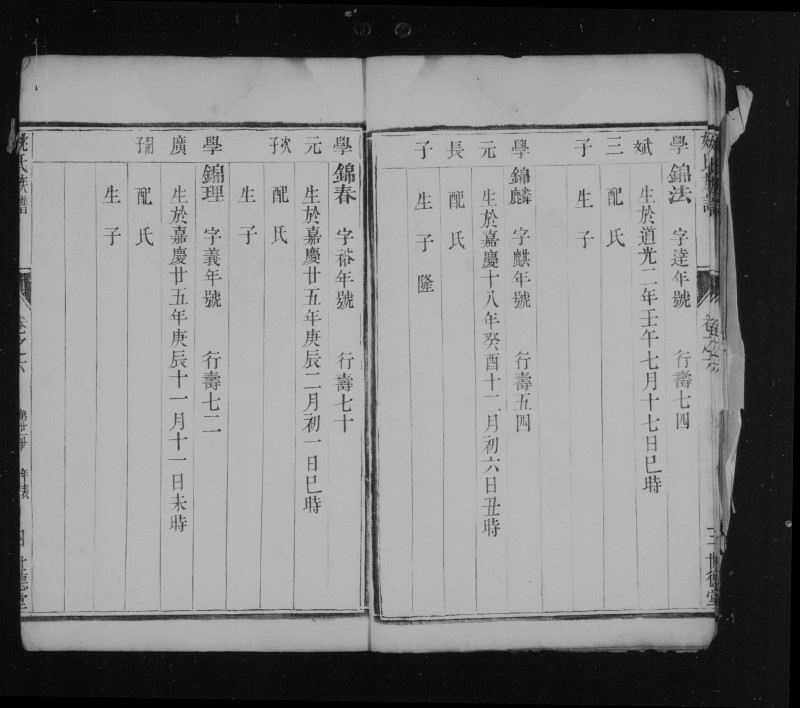 學 錦法 字達年號 行壽七四
斌 生於道光二年壬午七月十七日巳時
三 配 氏
子 生 子
學 錦麟 字麒年號 行壽五四
元 生於嘉慶十八年癸酉十二月初六日丑時
長 配 氏
子 生 子 隆
學 錦春 字裕年號 行壽七十
元 生於嘉慶廿五年庚辰二月初一日巳時
次子 配 氏
生 子
學 錦理 字義年號 行壽七二
廣 生於嘉慶廿五年庚辰十一月十一日未時
子 配 氏
生 子
姚氏族譜 卷之六 年表 四 世德堂